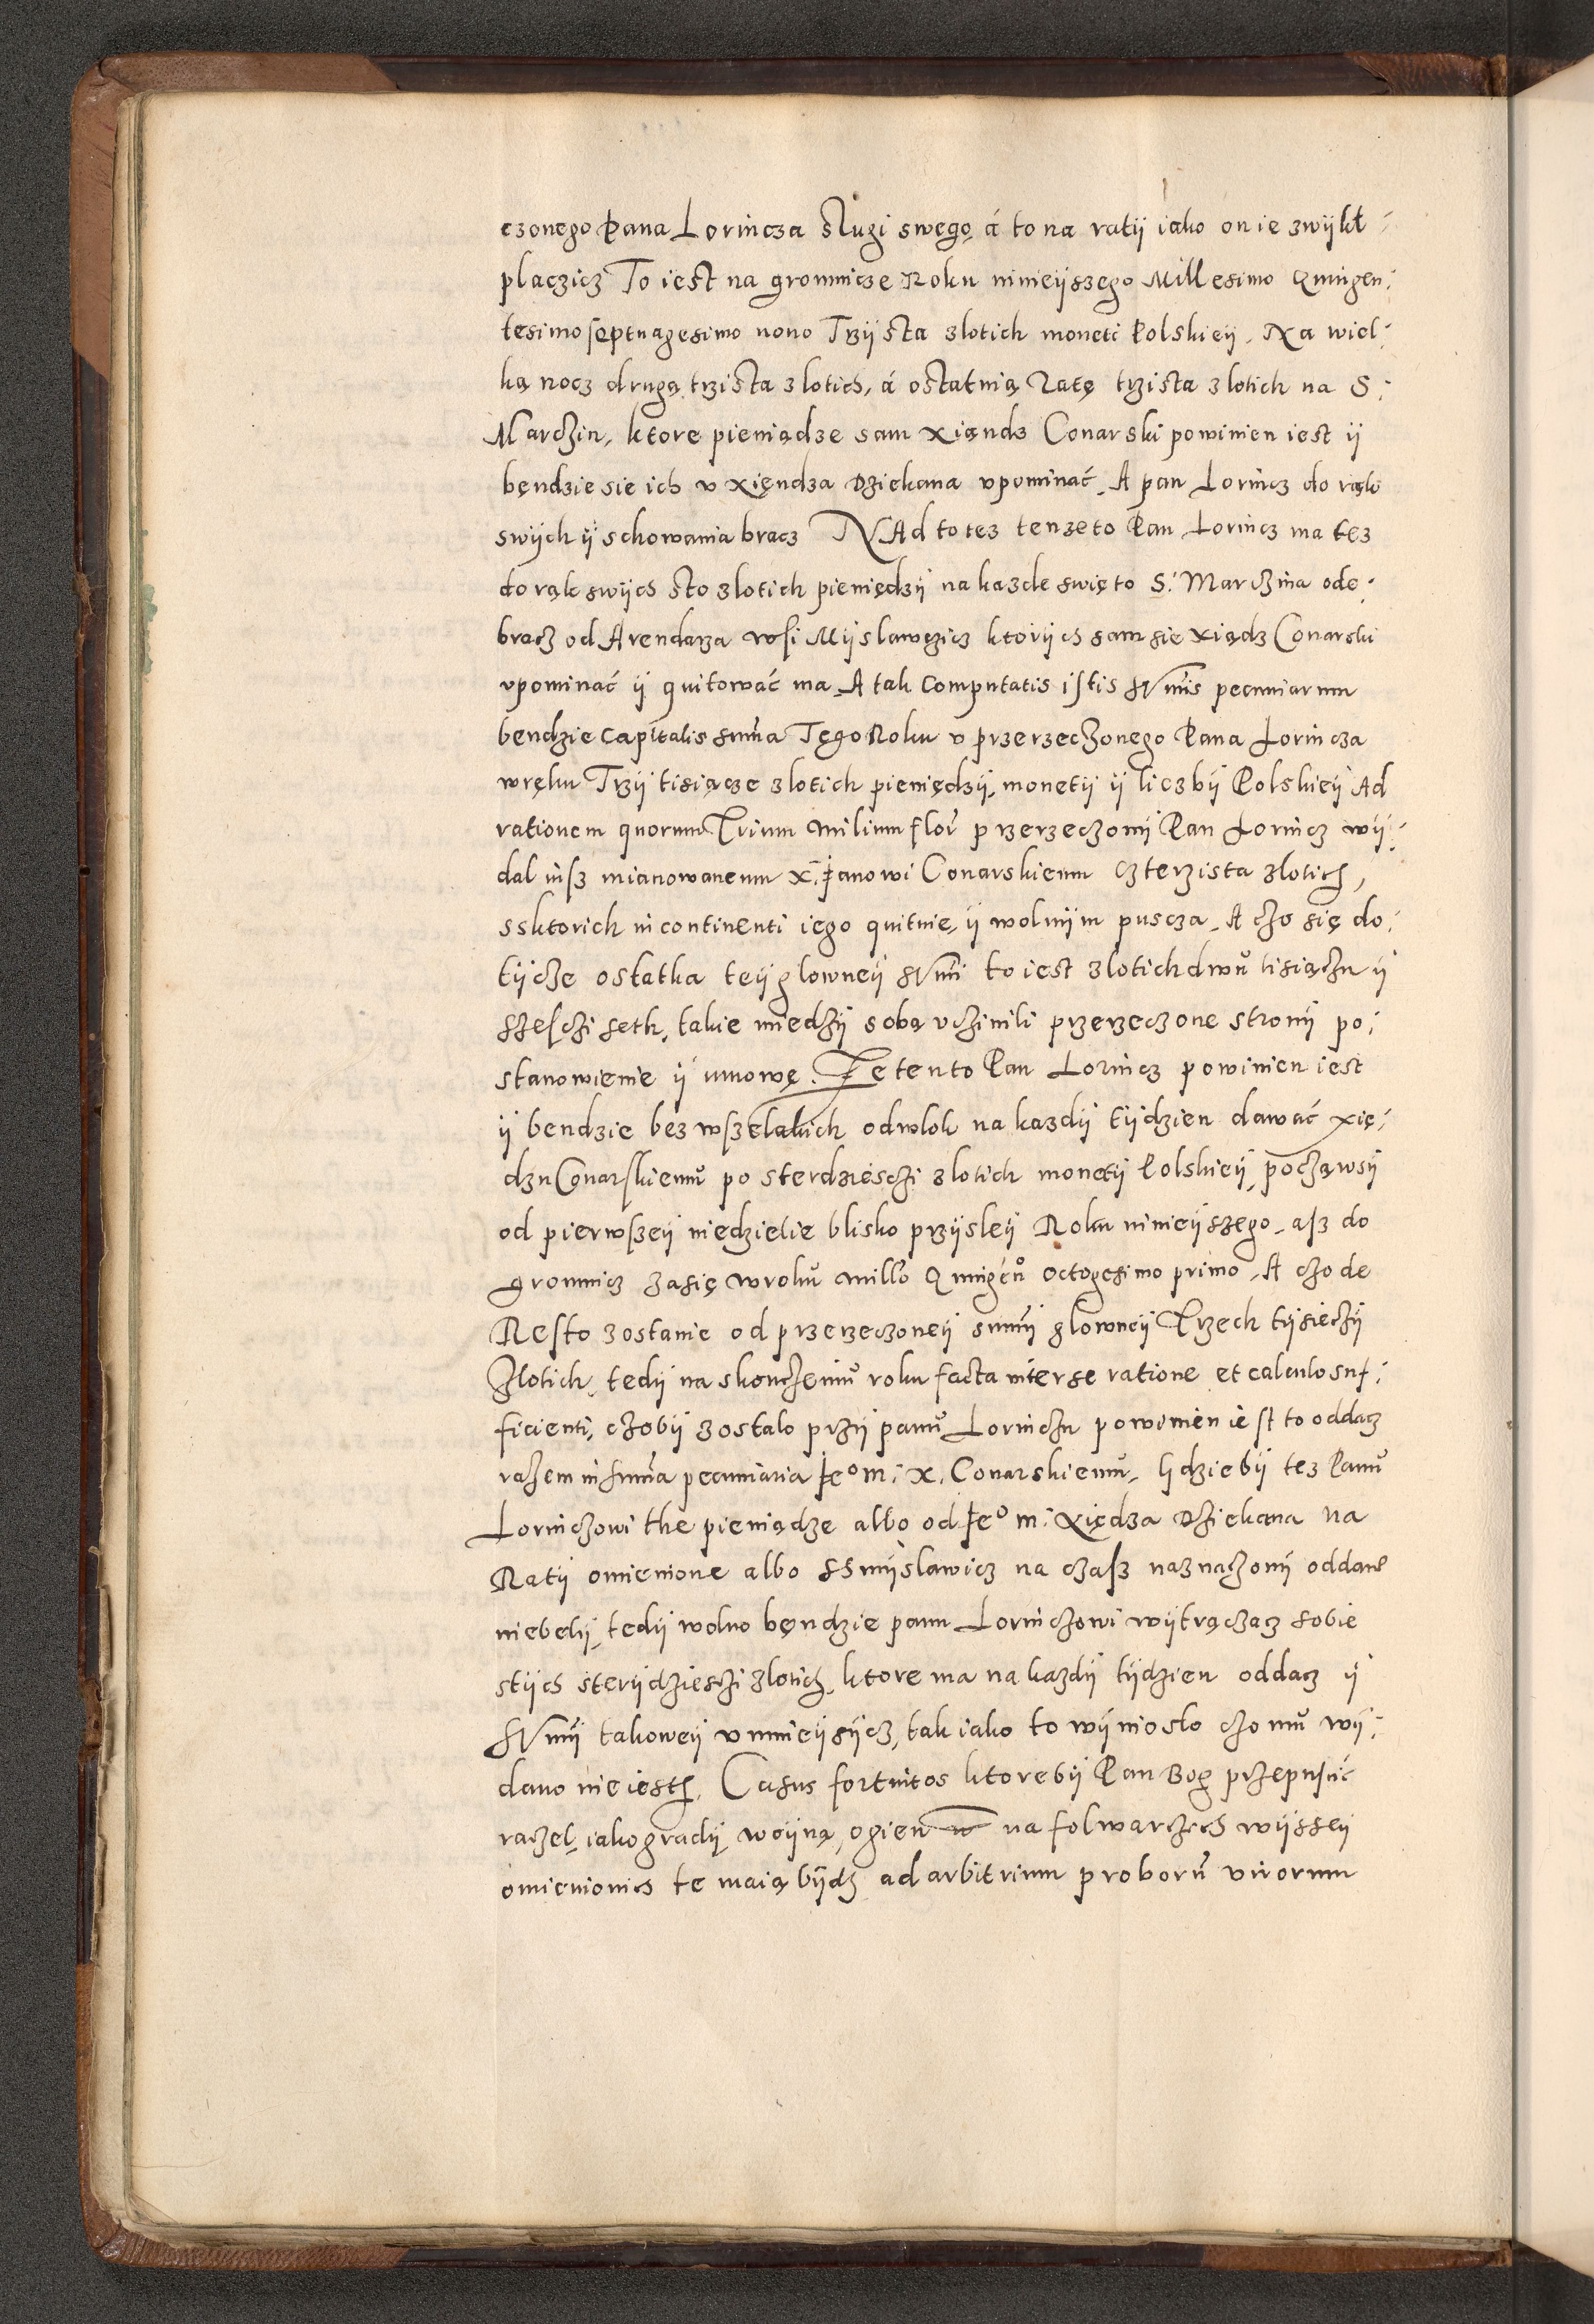 czonego Pana Lorincza slugi swego á to na ratÿ iako on ie zwÿkł
placzicz To iest na gromnicze Roku ninieÿszego Millesimo Quingen:
tesimo septuagesimo nono Trzÿsta zlotich moneti Polskieÿ. Na wiel:
ką nocz drugą trzista zlotich, á ostatnią Ratę trzista zlotich na S:
Marczin, ktore pieniądze sam xiąndz Conarski powinien iest ÿ
bęndzie sie ich v xięndza Dziekana vpominać. A pan Lorincz do rąk
swÿch ÿ schowania bracz NAd to tez tenzeto Pan Lorincz ma tez
do rąk swÿch sto zlotich pieniędzÿ na kazde swięto S: Marczina ode:
bracz od Arendarza wsi Mÿslawczicz ktorÿch sam sie xiądz Conarski
vpominać ÿ quitować ma. A tak computatis istis sum̃is pecuniarum
bendzie capitalis sum̃a Tego Roku v przerzeczonego Pana Lorincza
wręku Trzÿ tisiącze zlotich pieniędzÿ, monetÿ ÿ liczbÿ Polskieÿ Ad
rationem quorum Trium milium flor̃ przerzeczonÿ Pan Lorincz wÿ:
dal iusz mianowanemu X. panowi Conarskiemu czterzista zlotich,
ssktorich in continenti iego quituie, ÿ wolnÿm puscza. A czo się do:
tÿcze ostatka teÿ glowneÿ Sum̃i to iest zlotich dwů tisiączu ÿ
szesczi seth, takie miedzÿ sobą vczinili przerzeczone stronÿ po:
stanowienie ÿ umowę. Ze tento Pan Lorincz powinien iest
ÿ bendzie bez wszelakich odwlok na kazdÿ tÿdzien dawać xię:
dzu Conarskiemů po sterdziesczi zlotich monetÿ Polskieÿ, począwsÿ
od pierwszeÿ niedzielie blisko przÿsleÿ Roku ninieÿszego, asz do
gromnicz zasię wroku mill̃o Quingẽno octogesimo primo. A czo de
Resto zostanie od przerzeczoneÿ sum̃ÿ glowneÿ Trzech tÿsieczÿ
Zlotich, tedÿ na skonczeniů roku facta inter se ratione et calculo suf:
ficienti, czobÿ zostalo przÿ panů Lorinczu powinien iest to oddacz
razem in sum̃a pecuniaria Jeo m: X. Conarskiemů, Gdziebÿ tez Panů
Lorinczowi the pieniądze albo od Jeo m: Xiędza Dziekana na
Ratÿ omienione albo ssmÿslawicz na czasz naznaczonÿ oddane
niebelÿ, tedÿ wolno bęndzie panu Lorinczowi wÿtrączacz sobie
stÿch sterÿdziesczi zlotich, ktore ma na kazdÿ tÿdzien oddacz ÿ
Sum̃ÿ takoweÿ vmnieÿsÿcz, tak iako to wÿniosło czo mů wÿ:
dano nie iesth. Casus fortuitos ktorebÿ Pan Bog przepusćić
raczel, iako gradÿ woÿną, ogien na folwarczech wÿsseÿ
omienionich te maią bÿdz ad arbitrium proborũ virorum